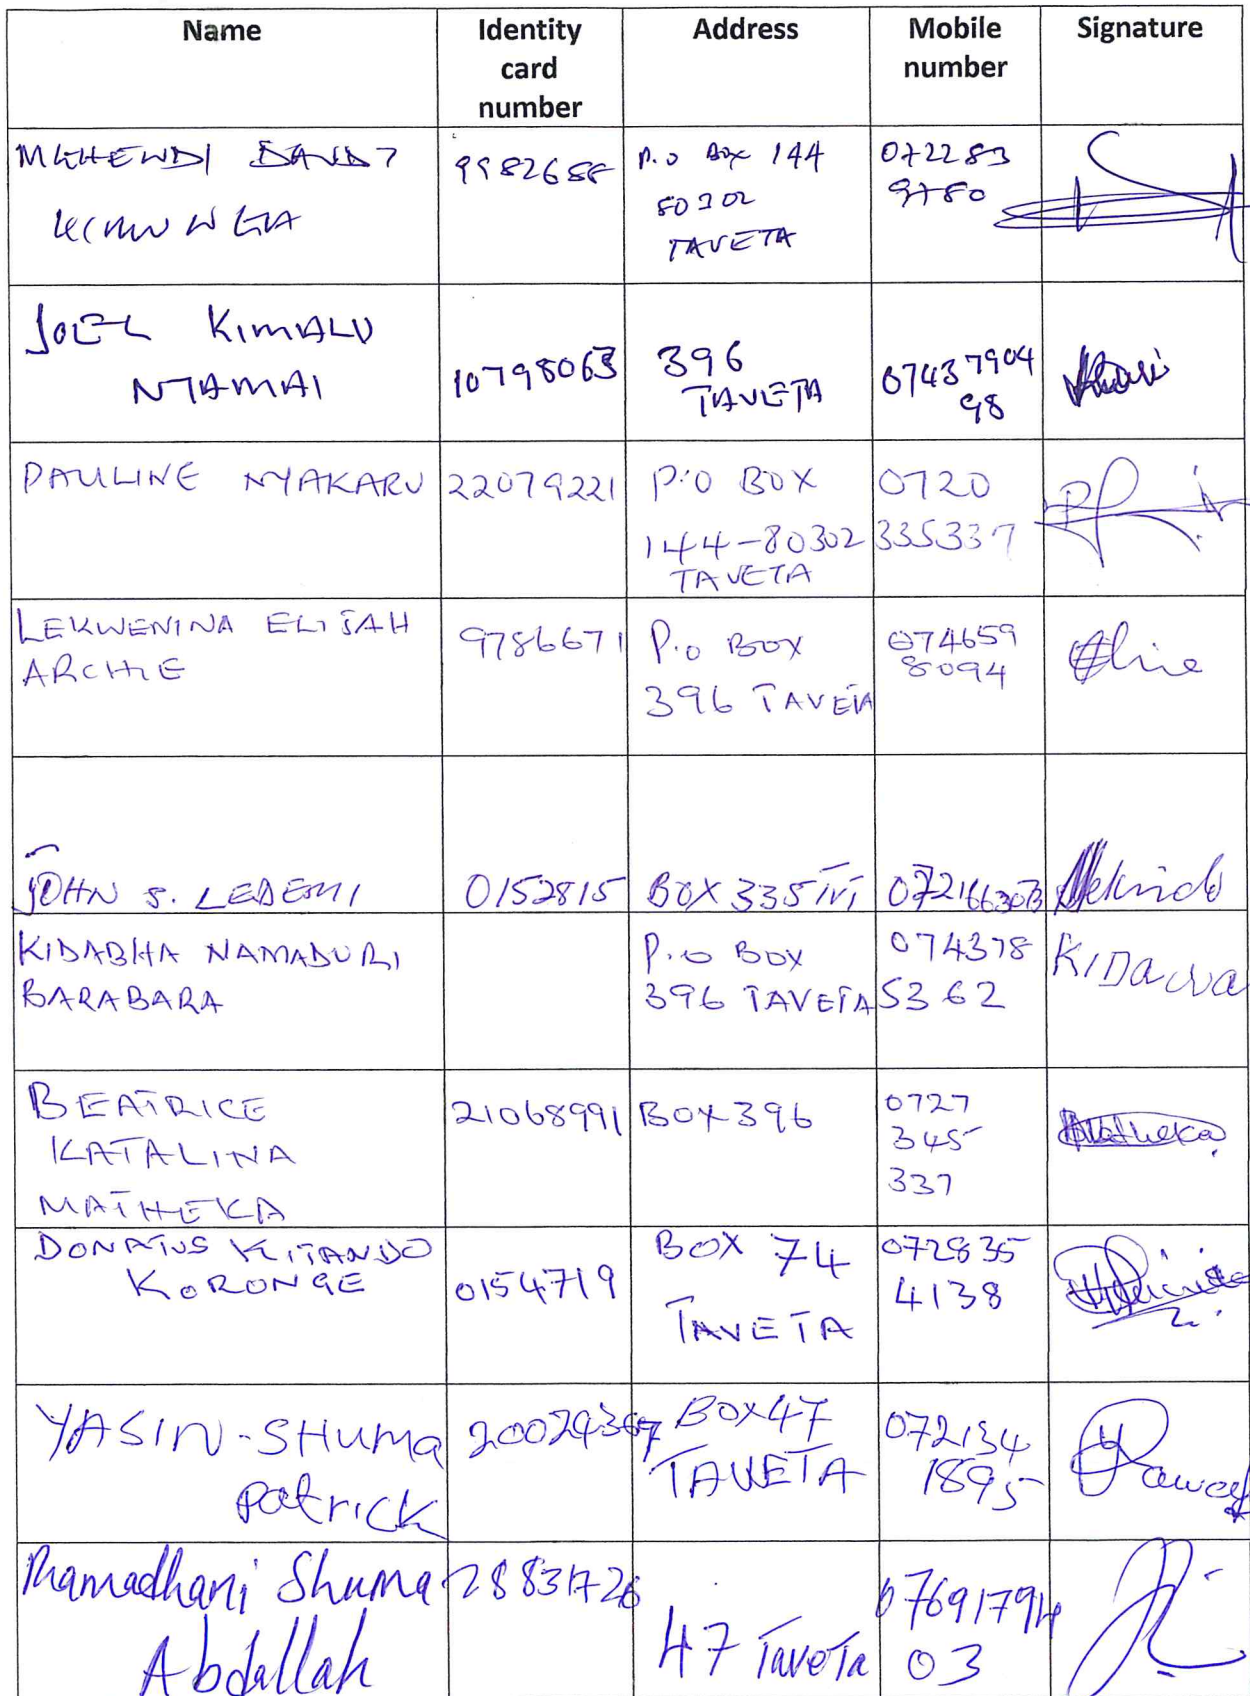 Name Identity card number Address Mobile number Signature
MKHENDI 9982688 P.O Box 144 80302 TAVETA 072283 9780
JOEL KIMALU NTAMAI 10798063 396 TAVETA 07437904 98
PAULINE NYAKARU 22079221 P.O BOX 144-80302 TAVETA 0720 335337
LEKWENINA ELIJAH ARCHIE 9786671 P.o BOX 396 TAVETA 074659 8094
JOHN S. LEDEMI 0152815 BOX 335 TVT 0721663073
KIDABHA NAMADURI BARABARA P.o BOX 396 TAVETA 074378 5362 KIDAWA
BEATRICE KATALINA MATHEKA 21068991 BOX 396 0727 345 337 Matheka
DONATUS KITANDO KORONGE 0154719 BOX 74 TAVETA 072835 4138
YASIN-SHUMA Patrick 20029367 BOX 47 TAVETA 072134 1895
Ramadhani Shuma Abdallah 28831726 47 Taveta 03